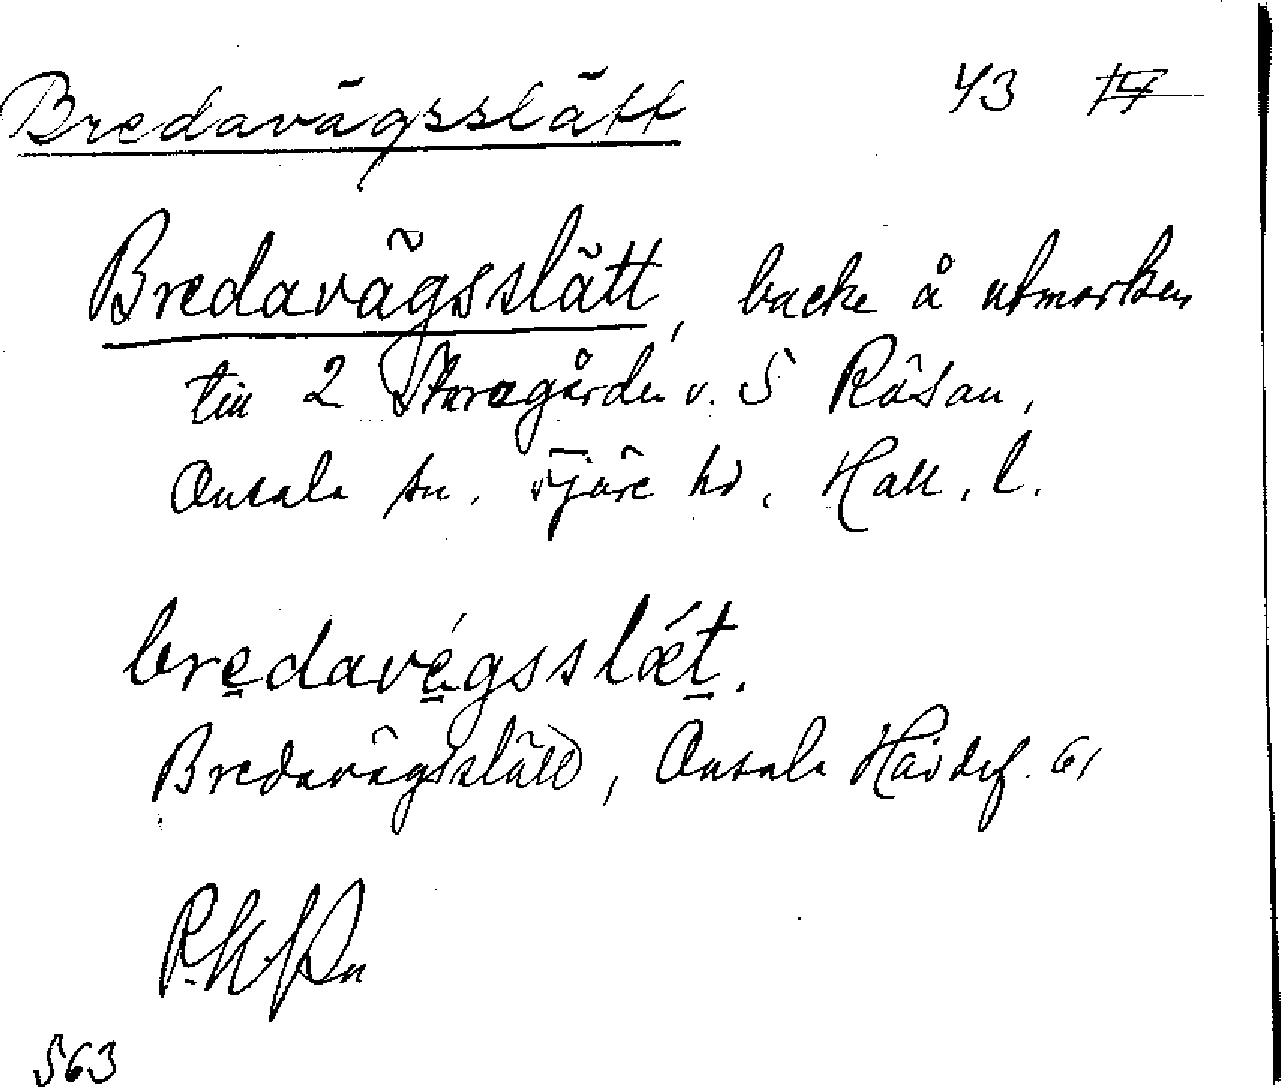 Bredavägsslätt 43 IV
Bredavägsslätt, backe å utmarken
till 2 Storegården v. S Råsan,
Onsala sn. Fjäre hd, Hall. l.
bredavégsslǽt.
Bredavägsslätt, Onsala Hävdef. 61
563